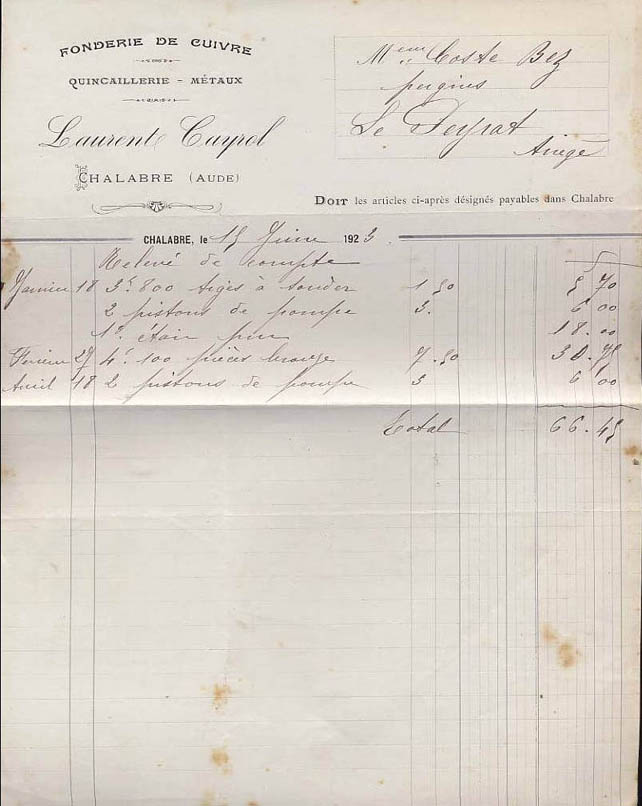 FONDERIE DE CUIVRE
QUINCAILLERIE - MÉTAUX
Laurent Cayrol
CHALABRE (AUDE)
Coste Bez
peignes
Le Peyrat
Ariège
DOIT les articles ci-après désignés payables dans Chalabre
CHALABRE, le 15 Juin 1923
Relevé de compte
Janvier 18 3k.800 tiges à souder 1.50 5 70
2 pistons de pompe 3. 6 00
1k. étain pur 18.00
Février 27 4k.100 pièces bronze 7.50 30.75
Avril 18 2 pistons de pompe 3 6 00
Total 66.45